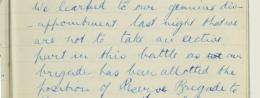 We learned to our genuine dis-
-appointment last night that we
are not to take an active
part in this battle as our
brigade has been allotted the
position of Reserve Brigade to